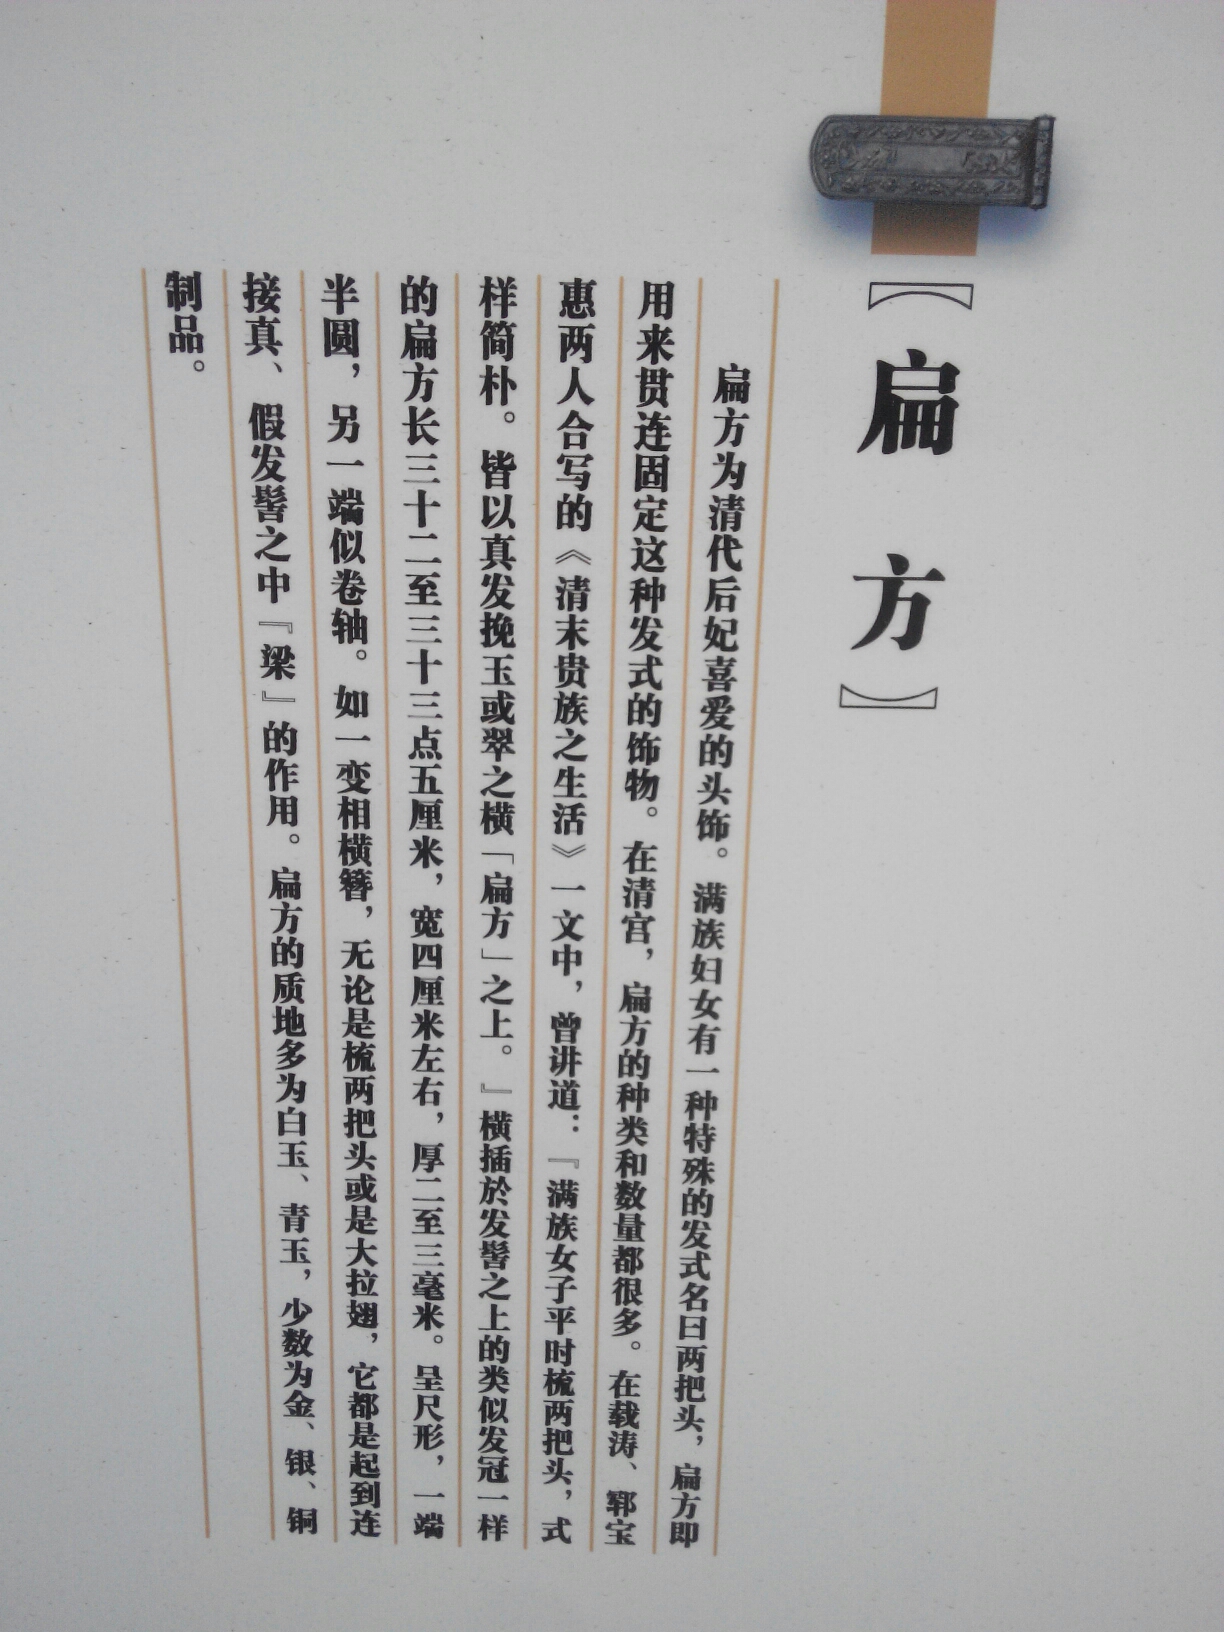 【扁方】
扁方为清代后妃喜爱的头饰。满族妇女有一种特殊的发式名曰两把头，扁方即
用来贯连固定这种发式的饰物。在清宫，扁方的种类和数量都很多。在载涛、郓宝
惠两人合写的《清末贵族之生活》一文中，曾讲道：『满族女子平时梳两把头，式
样简朴。皆以真发挽玉或翠之横「扁方」之上。』横插於发髻之上的类似发冠一样
的扁方长三十二至三十三点五厘米，宽四厘米左右，厚二至三毫米。呈尺形，一端
半圆，另一端似卷轴。如一变相横簪，无论是梳两把头或是大拉翅，它都是起到连
接真、假发髻之中『梁』的作用。扁方的质地多为白玉、青玉，少数为金、银、铜
制品。